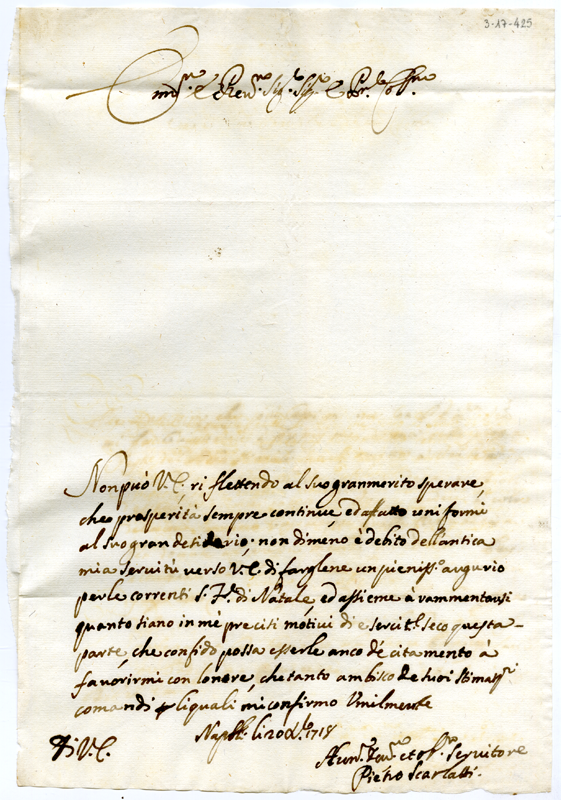 3-17-425
Em.mo e Rev.mo Sig.re Sig.re e Pr.ne Coll.mo
Non può V.E. riflettendo al suo gran merito sperare,
che prosperità sempre continue, ed affatto uniformi
al suo gran desiderio. non dimeno è debito dell'antica
mia servitù verso V.E. di farglene un pieniss.o augurio
per le correnti S. F.e di Natale, ed assieme à rammentarsi
quanto siano in mè precisi motivi di esercit.la seco questa
parte, che confido possa esserle anco d'ecitamento à
favorirmi con l'onore, che tanto ambisco de suoi stimass.mi
comandi p liquali mi confirmo Umilmente
Nap. li 20 X.bre 1718
Di V.E.
Servitore
Pietro Scarlatti.